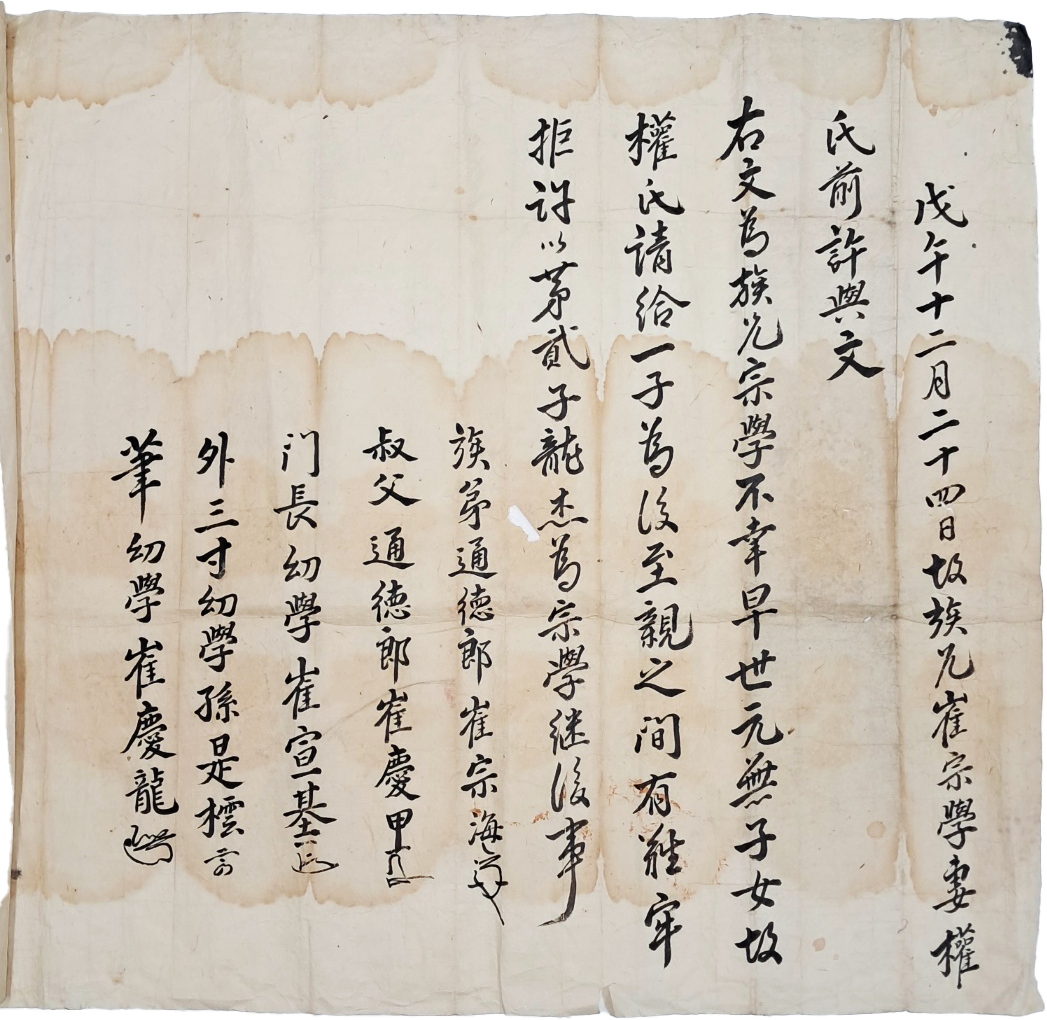 戊午十二月二十四日故族兄崔宗學妻權
氏前許與文
右文為族兄宗學不幸早世元無子女故
權氏請給一子為後至親之間有難牢
拒許以茅貳子龍杰為宗學継後事
族弟通德郎崔宗海
叔父通德郎崔慶甲
门長幼學崔宣基
外三寸幼學孫是橒
筆幼學崔慶龍